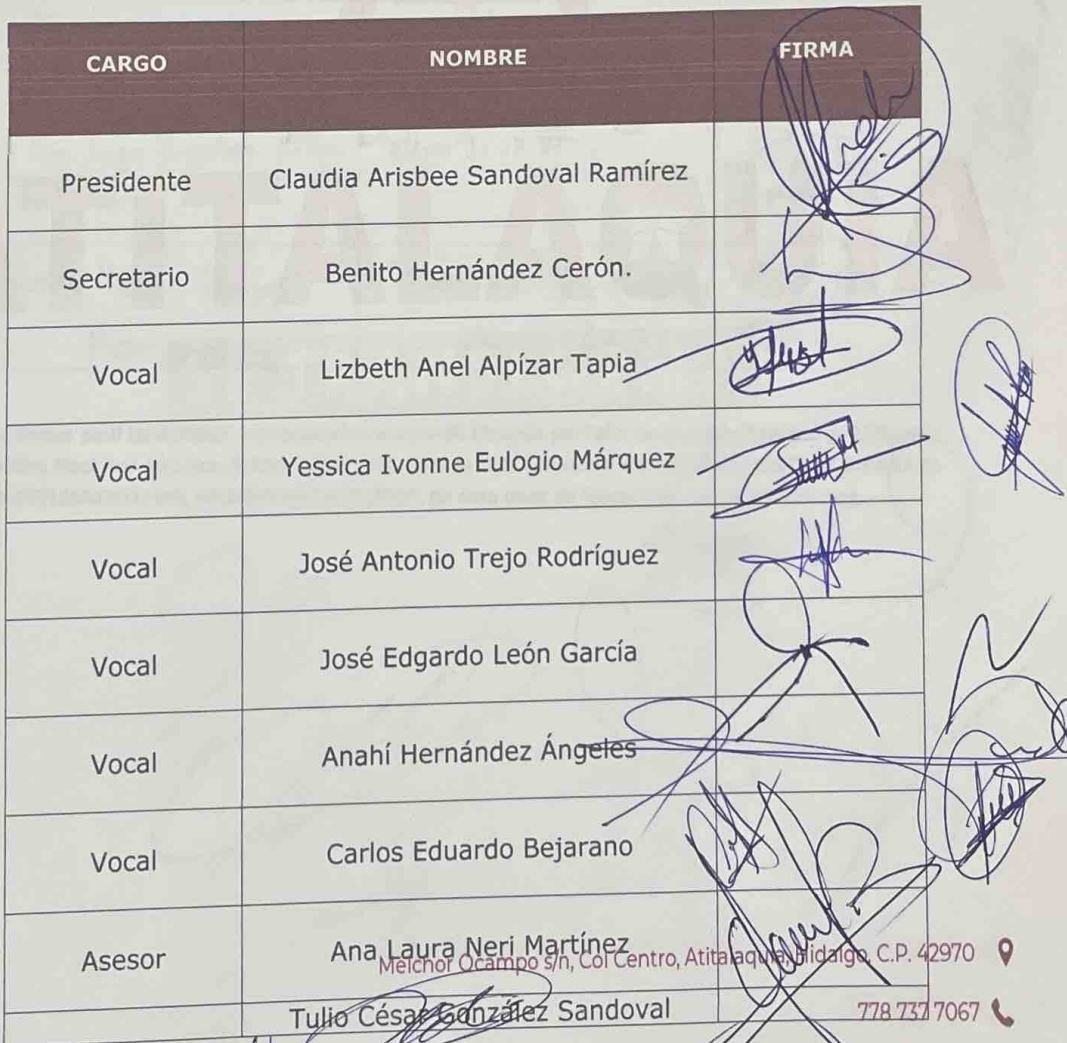 CARGO NOMBRE FIRMA
Presidente Claudia Arisbee Sandoval Ramírez
Secretario Benito Hernández Cerón.
Vocal Lizbeth Anel Alpízar Tapia
Vocal Yessica Ivonne Eulogio Márquez
Vocal José Antonio Trejo Rodríguez
Vocal José Edgardo León García
Vocal Anahí Hernández Ángeles
Vocal Carlos Eduardo Bejarano
Asesor Ana Laura Neri Martínez
Melchor Ocampo s/n, Col Centro, Atitalaquia, Hidalgo, C.P. 42970
Tulio César González Sandoval
778 737 7067